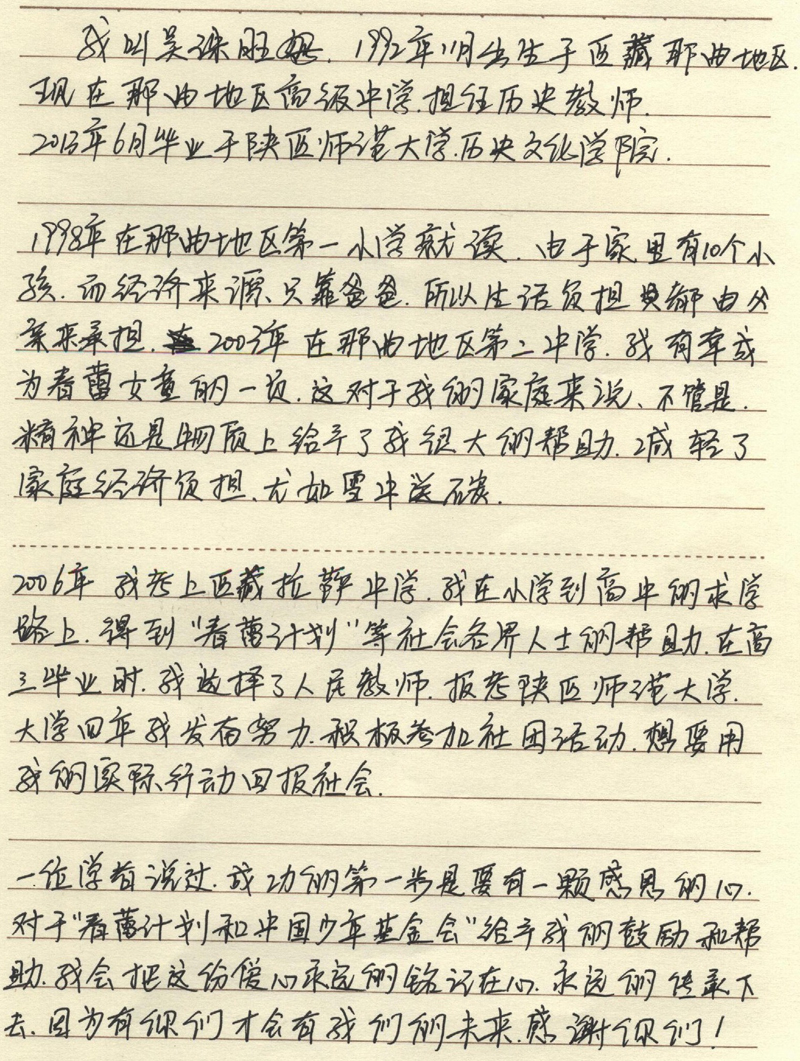 我叫吴珠旺姆. 1992年11月出生于西藏那曲地区.
现在那曲地区高级中学.担任历史教师.
2013年6月毕业于陕西师范大学.历史文化学院.
1998年在那曲地区第一小学就读. 由于家里有10个小
孩.而经济来源、只靠爸爸.所以生活负担 都由父
亲来承担. 2003年在那曲地区第二中学.我有幸成
为春蕾女童的一员.这对于我的家庭来说、不管是.
精神还是物质上给予了我很大的帮助.减轻了
家庭经济负担、尤如雪中送碳.
2006年 我考上西藏拉萨中学.我在小学到高中的求学
路上.得到“春蕾计划”等社会各界人士的帮助.在高
三毕业时.我选择了人民教师.报考陕西师范大学.
大学四年我发奋努力.积极参加社团活动.想要用
我的实际行动回报社会.
一位学者说过.成功的第一步是要有一颗感恩的心.
对于“春蕾计划和中国少年基金会”给予我的鼓励和帮
助.我会把这份爱心永远的铭记在心.永远的传承下
去.因为有你们才会有我们的未来.感谢你们！